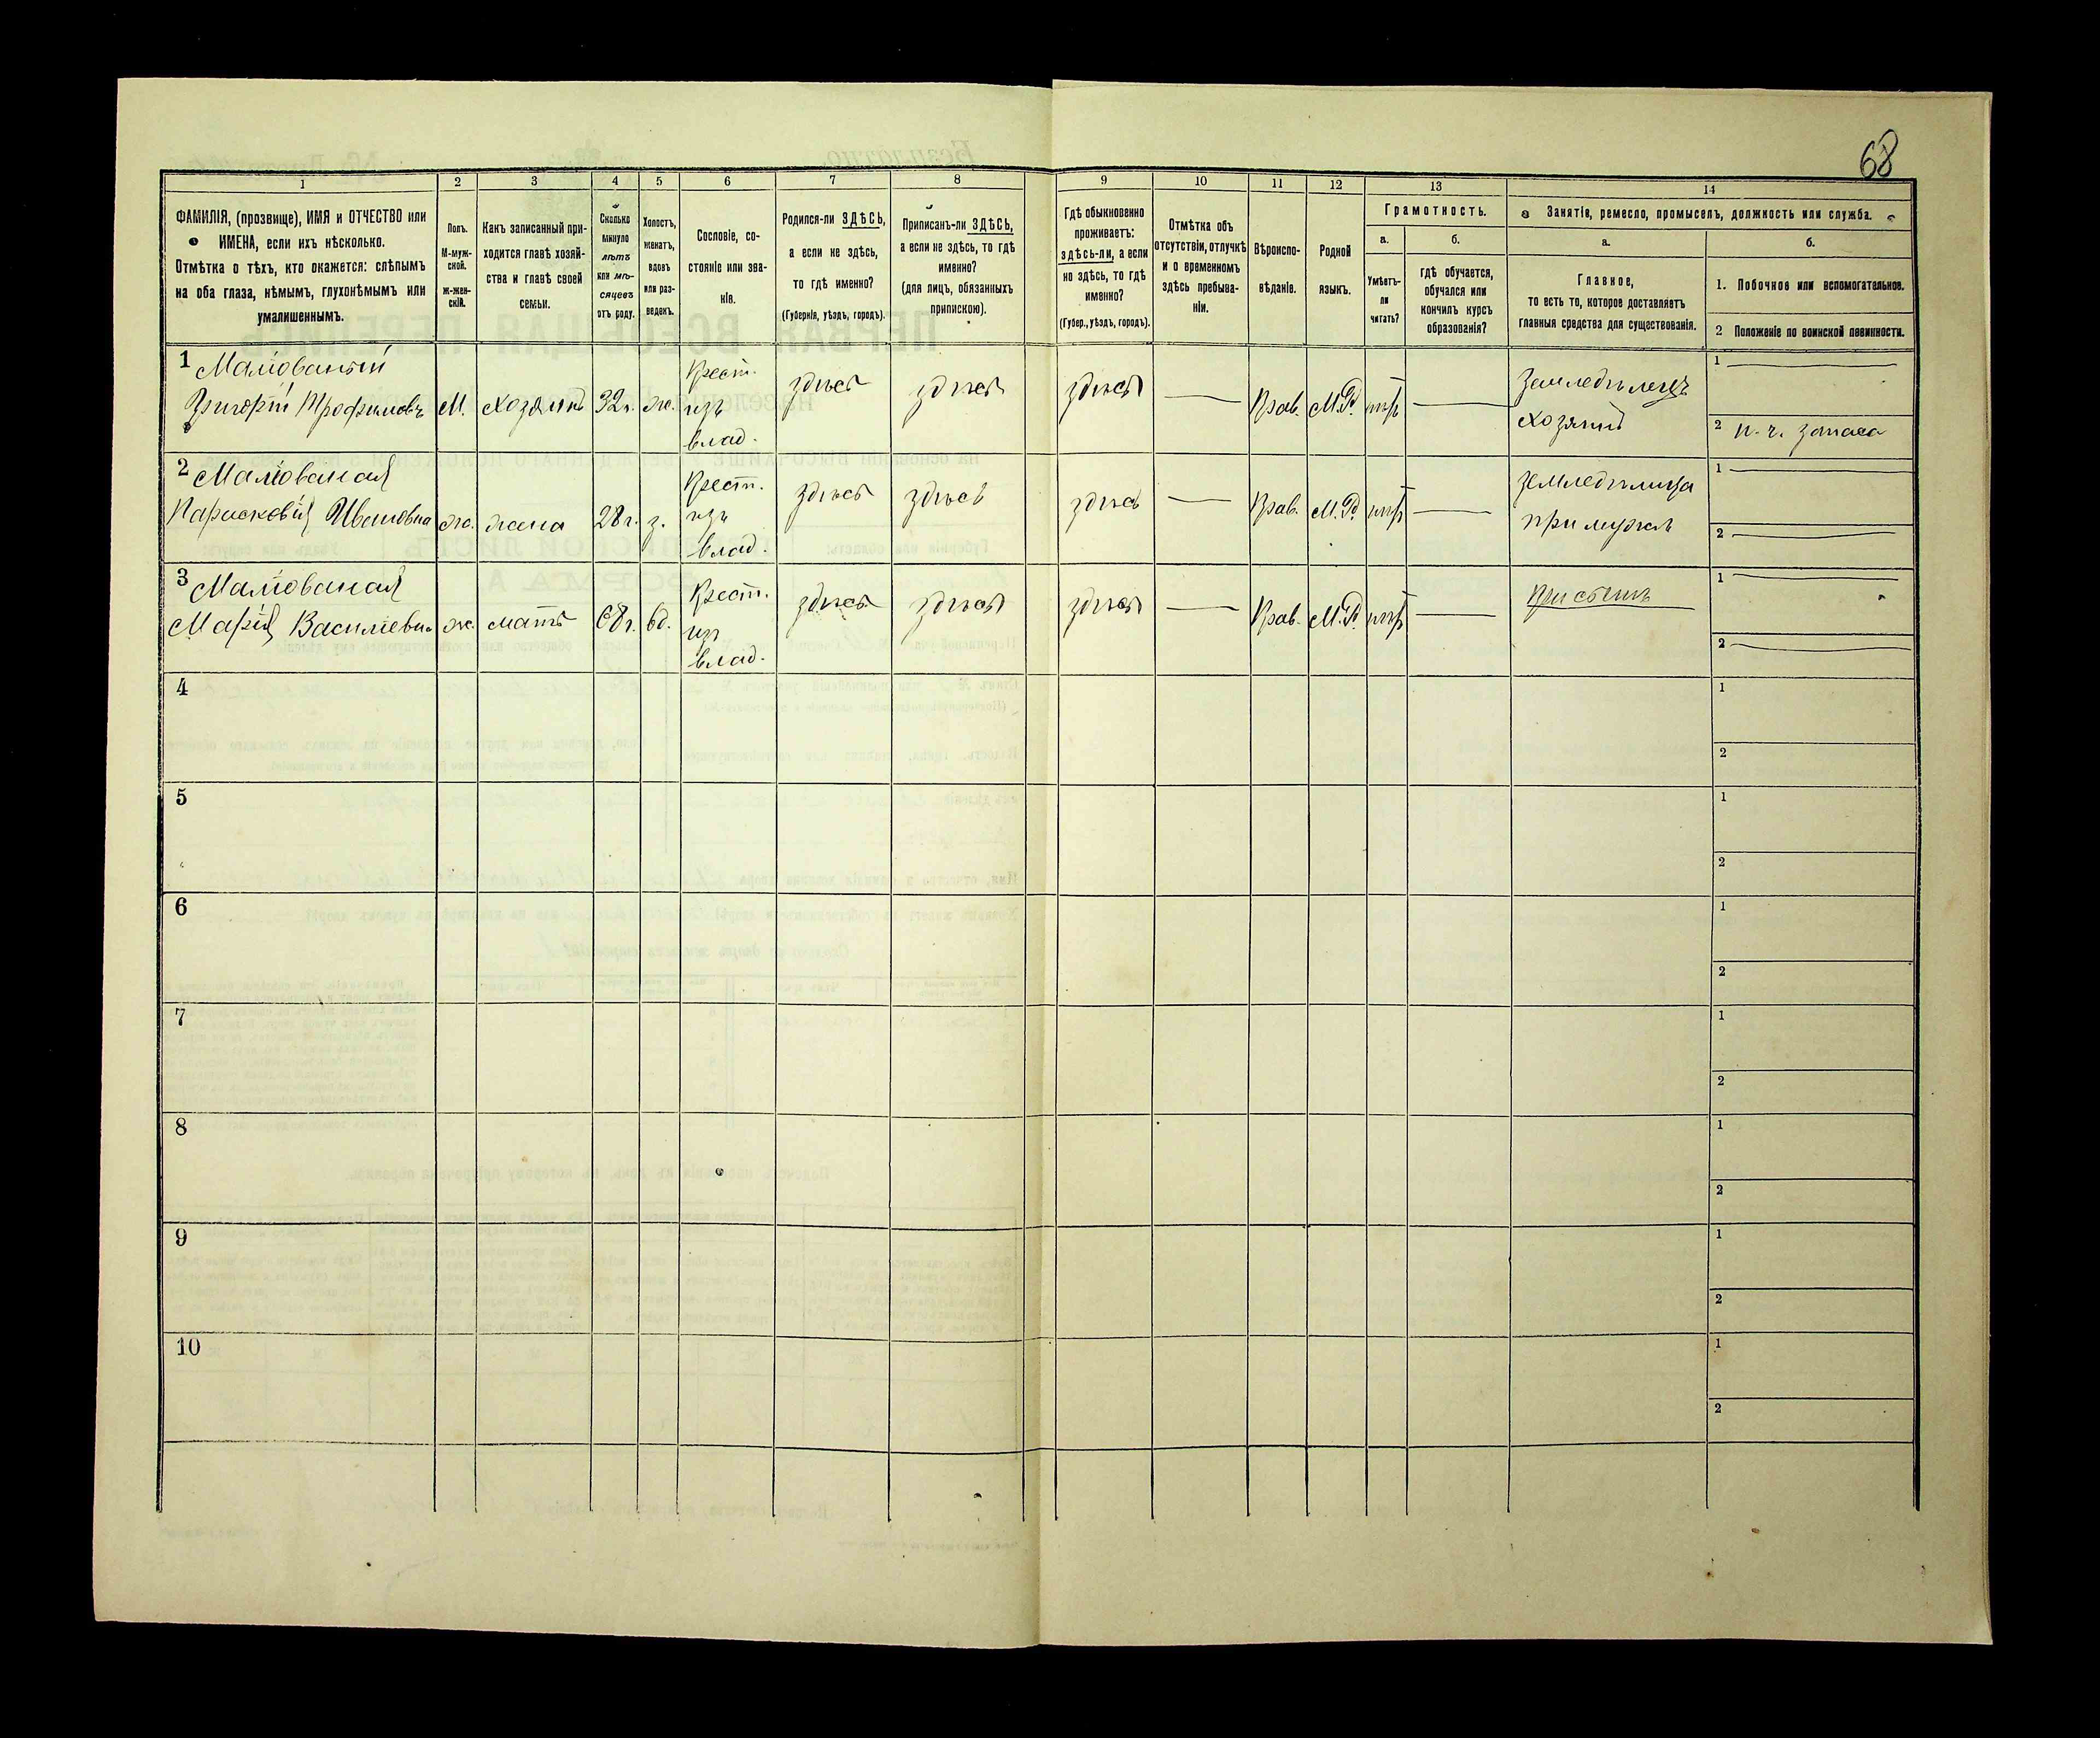 68
1 2 3 4 5 6 7 8 9 10 11 12 13 14
ФАМИЛІЯ, (прозвище), ИМЯ и ОТЧЕСТВО или
ИМЕНА, если ихъ нѣсколько.
Отмѣтка о тѣхъ, кто окажется: слѣпымъ
на оба глаза, нѣмымъ, глухонѣмымъ или
умалишеннымъ.
Полъ.
М-муж-
ской.
ж-жен-
скій.
Какъ записанный при-
ходится главѣ хозяй-
ства и главѣ своей
семьи.
Сколько
минуло
лѣтъ
или мѣ-
сяцевъ
отъ роду.
Холостъ,
женатъ,
вдовъ
или раз-
веденъ.
Сословіе, со-
стояніе или зва-
ніе.
Родился-ли ЗДѢСЬ,
а если не здѣсь,
то гдѣ именно?
(Губернія, уѣздъ, городъ).
Приписанъ-ли ЗДѢСЬ,
а если не здѣсь, то гдѣ
именно?
(для лицъ, обязанныхъ
припискою).
Гдѣ обыкновенно
проживаетъ:
здѣсь-ли, а если
не здѣсь, то гдѣ
именно?
(Губер., уѣздъ, городъ).
Отмѣтка объ
отсутствіи, отлучкѣ
и о временномъ
здѣсь пребыва-
ніи.
Вѣроиспо-
вѣданіе.
Родной
языкъ.
Грамотность.
а.
Умѣетъ-
ли
читать?
б.
гдѣ обучается,
обучался или
кончилъ курсъ
образованія?
Занятіе, ремесло, промыселъ, должность или служба.
а.
Главное,
то есть то, которое доставляетъ
главныя средства для существованія.
б.
1. Побочное или вспомогательное.
2 Положеніе по воинской повинности.
1 Маліованый
Григорій Трофимовъ
М.
хозяинъ
32 г.
же.
Крест.
изъ
влад.
здѣсь
здѣсь
здѣсь
Прав.
М.Р.
нѣтъ
Земледѣлецъ
хозяинъ
1
2 н. ч. запаса
2 Маліованая
Парасковія Ивановна
же.
жена
28 г.
з.
Крест.
изъ
влад.
здѣсь
здѣсь
здѣсь
Прав.
М.Р.
нѣтъ
земледѣлица
при мужѣ
1
2
3 Маліованая
Марія Василіевна
же.
мать
68 г.
вд.
Крест.
изъ
влад.
здѣсь
здѣсь
здѣсь
Прав.
М.Р.
нѣтъ
при сынѣ
1
2
4
1
2
5
1
2
6
1
2
7
1
2
8
1
2
9
1
2
10
1
2